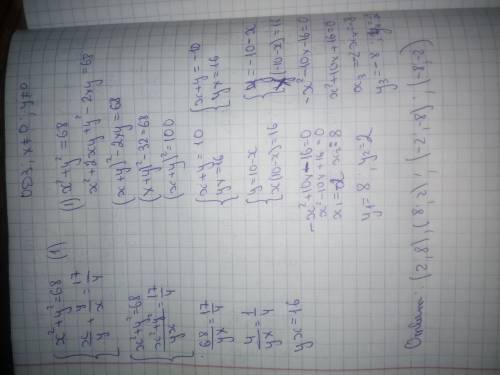 ОДЗ, x≠0; y≠0
{x²+y²=68 (1)
x/y + y/x = 17/4
{x²+y²=68
(x²+y²)/yx = 17/4
68/yx = 17/4
4/yx = 1/4
yx=16
(1) x²+y²=68
x²+2xy+y²-2xy=68
(x+y)²-2xy=68
(x+y)²-32=68
(x+y)²=100
{x+y=10
yx=16
{y=10-x
x(10-x)=16
-x²+10x-16=0
x²-10x+16=0
x₁=2 x₂=8
y₁=8, y₂=2
{x+y=-10
yx=16
{y=-10-x
x(-10-x)=16
-x²-10x-16=0
x²+10x+16=0
x₃=-2 x₄=-8
y₃=-8 y₄=-2
Ответ: (2,8), (8,2), (-2,-8), (-8,-2)